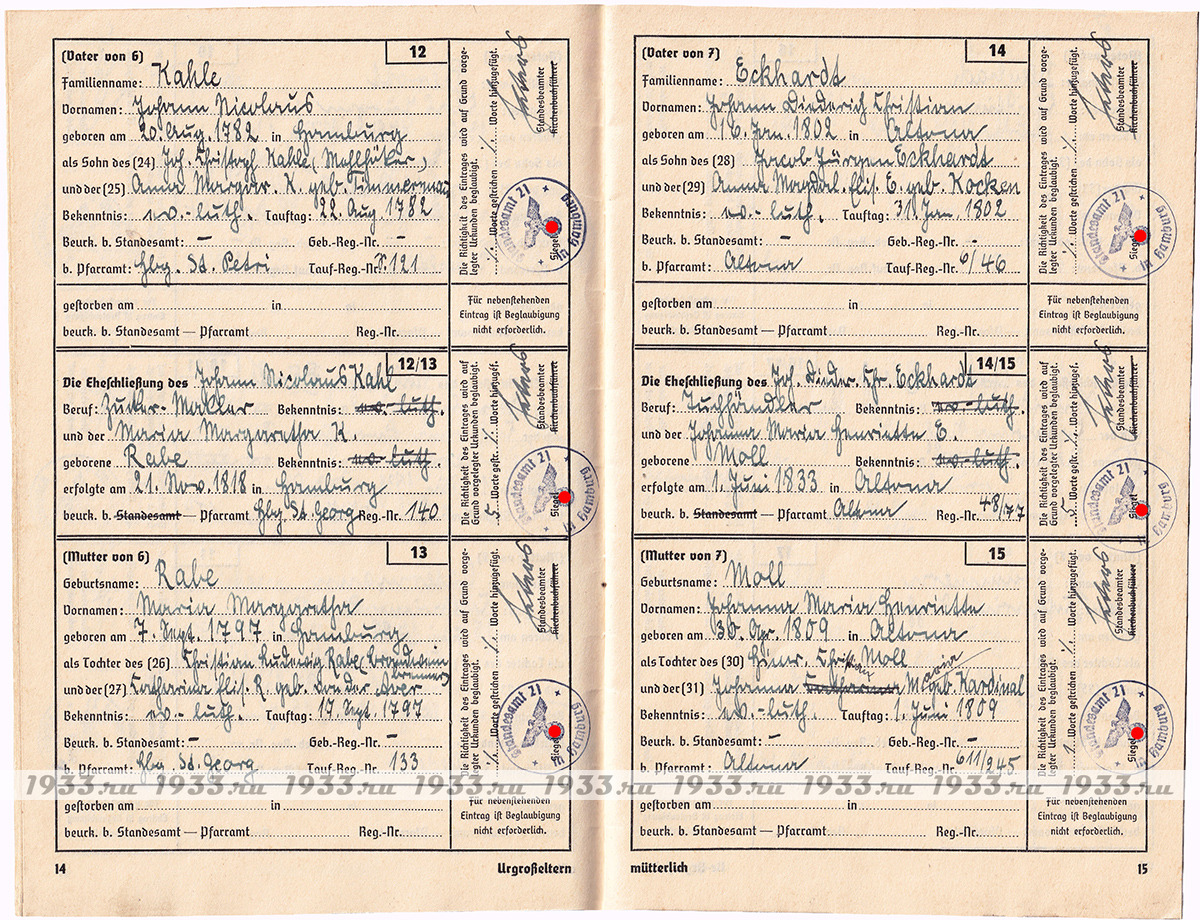 (Vater von 6)
12
Familienname: Kahle
Vornamen: Johann Nicolaus
geboren am 20. Aug. 1782 in Hamburg
als Sohn des (24) Joh. Christoph Kahle
und der (25) Anna Margar. K. geb. Timmermann
Bekenntnis: ev.-luth. Tauftag: 22. Aug. 1782
Beurk. b. Standesamt: – Geb.-Reg.-Nr. –
b. Pfarramt: Hbg. St. Petri Tauf-Reg.-Nr. 121
Die Richtigkeit des Eintrages wird auf Grund vorge-
legter Urkunden beglaubigt.
Worte gestrichen Worte hinzugefügt.
Standesbeamter
Kirchenbuchführer
Siegel
Standesamt 21 in Hamburg
gestorben am in
beurk. b. Standesamt — Pfarramt Reg.-Nr.
Für nebenstehenden
Eintrag ist Beglaubigung
nicht erforderlich.
12/13
Die Eheschließung des Johann Nicolaus Kahl
Beruf: Zucker-Makler Bekenntnis: ev.-luth.
und der Maria Margaretha K.
geborene Rabe Bekenntnis: ev.-luth.
erfolgte am 21. Nov. 1818 in Hamburg
beurk. b. Standesamt Pfarramt Hbg. St. Georg Reg.-Nr. 140
Die Richtigkeit des Eintrages wird auf
Grund vorgelegter Urkunden beglaubigt.
5 Worte gestr. Worte hinzugef.
Standesbeamter
Kirchenbuchführer
Siegel
Standesamt 21 in Hamburg
(Mutter von 6)
13
Geburtsname: Rabe
Vornamen: Maria Margaretha
geboren am 7. Sept. 1797 in Hamburg
als Tochter des (26) Christian Ludewig Rabe
und der (27) Catharina Elis. R. geb. von der
Bekenntnis: ev.-luth. Tauftag: 17. Sept. 1797
Beurk. b. Standesamt: – Geb.-Reg.-Nr. –
b. Pfarramt: Hbg. St. Georg Tauf-Reg.-Nr. 133
Die Richtigkeit des Eintrages wird auf Grund vorge-
legter Urkunden beglaubigt.
Worte gestrichen Worte hinzugefügt.
Standesbeamter
Kirchenbuchführer
Siegel
Standesamt 21 in Hamburg
gestorben am in
beurk. b. Standesamt — Pfarramt Reg.-Nr.
Für nebenstehenden
Eintrag ist Beglaubigung
nicht erforderlich.
14 Urgroßeltern
(Vater von 7)
14
Familienname: Eckhardt
Vornamen: Johann Diederich Christian
geboren am 16. Jan. 1802 in Altona
als Sohn des (28) Jacob Jürgen Eckhardt
und der (29) Anna Magdal. Elis. E. geb. Kocken
Bekenntnis: ev.-luth. Tauftag: 31. Jan. 1802
Beurk. b. Standesamt: – Geb.-Reg.-Nr. –
b. Pfarramt: Altona Tauf-Reg.-Nr. 6/46
Die Richtigkeit des Eintrages wird auf Grund vorge-
legter Urkunden beglaubigt.
Worte gestrichen Worte hinzugefügt.
Standesbeamter
Kirchenbuchführer
Siegel
Standesamt 21 in Hamburg
gestorben am in
beurk. b. Standesamt — Pfarramt Reg.-Nr.
Für nebenstehenden
Eintrag ist Beglaubigung
nicht erforderlich.
14/15
Die Eheschließung des Joh. Dieder. Chr. Eckhardt
Beruf: Tuchhändler Bekenntnis: ev.-luth.
und der Johanna Maria Henriette E.
geborene Moll Bekenntnis: ev.-luth.
erfolgte am 1. Juni 1833 in Altona
beurk. b. Standesamt Pfarramt Altona Reg.-Nr. 48/77
Die Richtigkeit des Eintrages wird auf
Grund vorgelegter Urkunden beglaubigt.
5 Worte gestr. Worte hinzugef.
Standesbeamter
Kirchenbuchführer
Siegel
Standesamt 21 in Hamburg
(Mutter von 7)
15
Geburtsname: Moll
Vornamen: Johanna Maria Henriette
geboren am 30. Apr. 1809 in Altona
als Tochter des (30) Hinr. Moll
und der (31) Johanna Catharina Maria geb. Kardinal
Bekenntnis: ev.-luth. Tauftag: 1. Juni 1809
Beurk. b. Standesamt: – Geb.-Reg.-Nr. –
b. Pfarramt: Altona Tauf-Reg.-Nr. 611/245
Die Richtigkeit des Eintrages wird auf Grund vorge-
legter Urkunden beglaubigt.
1 Worte gestrichen Worte hinzugefügt.
Standesbeamter
Kirchenbuchführer
Siegel
Standesamt 21 in Hamburg
1933.ru 1933.ru 1933.ru 1933.ru 1933.ru 1933.ru 1933.ru 1933.ru 1933.ru
gestorben am in
beurk. b. Standesamt — Pfarramt Reg.-Nr.
Für nebenstehenden
Eintrag ist Beglaubigung
nicht erforderlich.
mütterlich 15